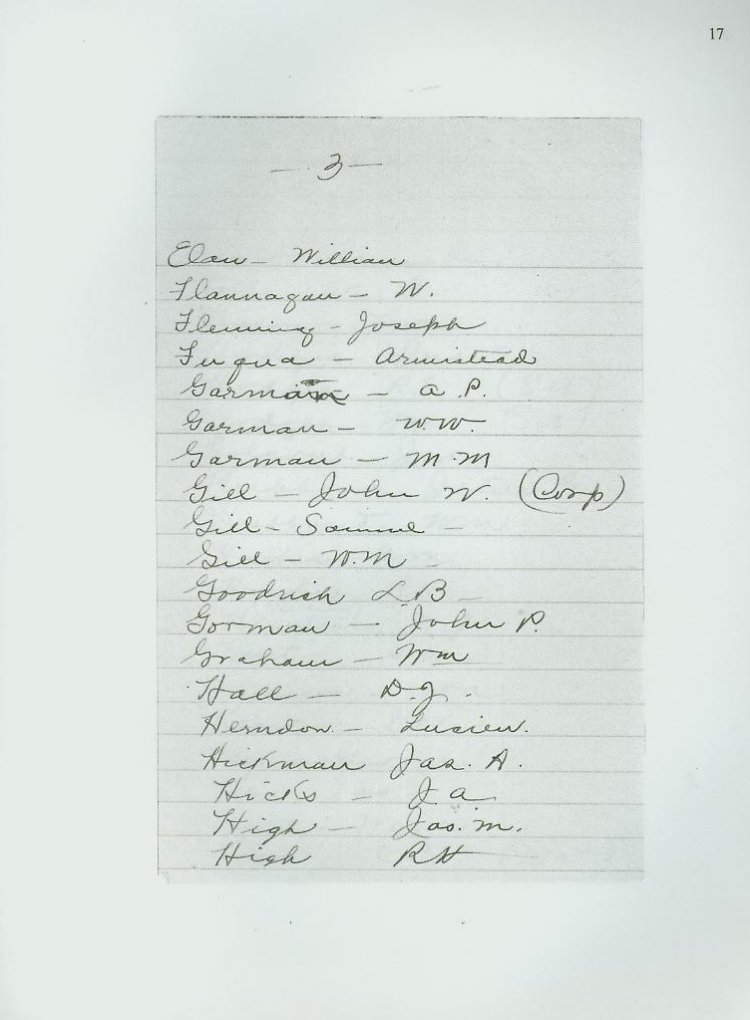 17
— 3 —
Elam – William
Flannagan – W.
Fleming – Joseph
Fuqua – Armistead
Garman – A. P.
Garman – W.W.
Garman – M.M
Gill – John W. (Corp)
Gill – Samuel –
Gill – W.M –
Goodrich L.B –
Gorman – John P.
Graham – Wm
Hall – D.J.
Herndon – Lucien.
Hickman Jas. A.
Hicks – J a
High – Jas. M.
High RH